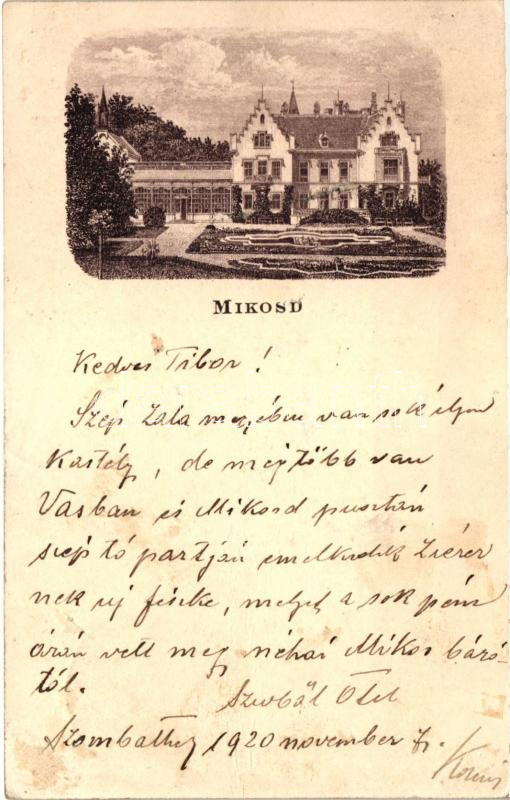 MIKOSD
Kedves Tibor!
Szép Zala megyében van sok ilyen
kastély, de még több van
Vasban és Mikosd pusztán
szép tó partján emelkedik
nek új fészke, melyet a sok pénz
árán vett meg néhai Mikos báró-
tól.
Ölel
Szombathely 1920 november